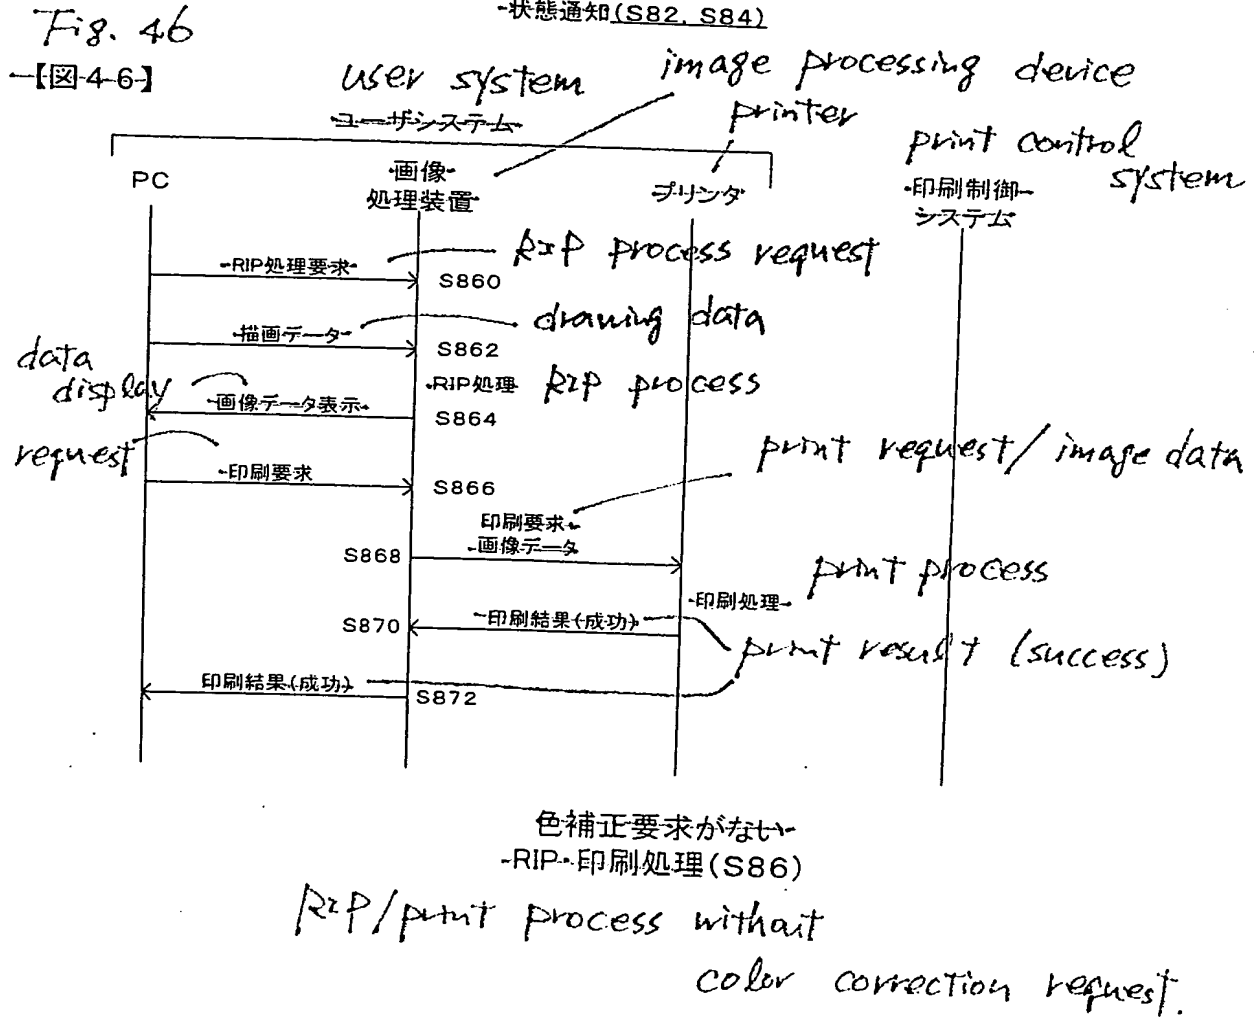 状態通知(S82, S84)
Fig. 46
【図46】
user system
image processing device
ユーザシステム
printer
print control
system
PC
画像
処理装置
プリンタ
印刷制御
システム
RIP処理要求
RIP process request
S860
描画データ
drawing data
S862
data
display
RIP処理
RIP process
画像データ表示
S864
request
印刷要求
S866
print request/image data
印刷要求
画像データ
S868
print process
印刷処理
印刷結果(成功)
S870
print result (success)
印刷結果(成功)
S872
色補正要求がない
RIP・印刷処理(S86)
RIP/print process without
color correction request.